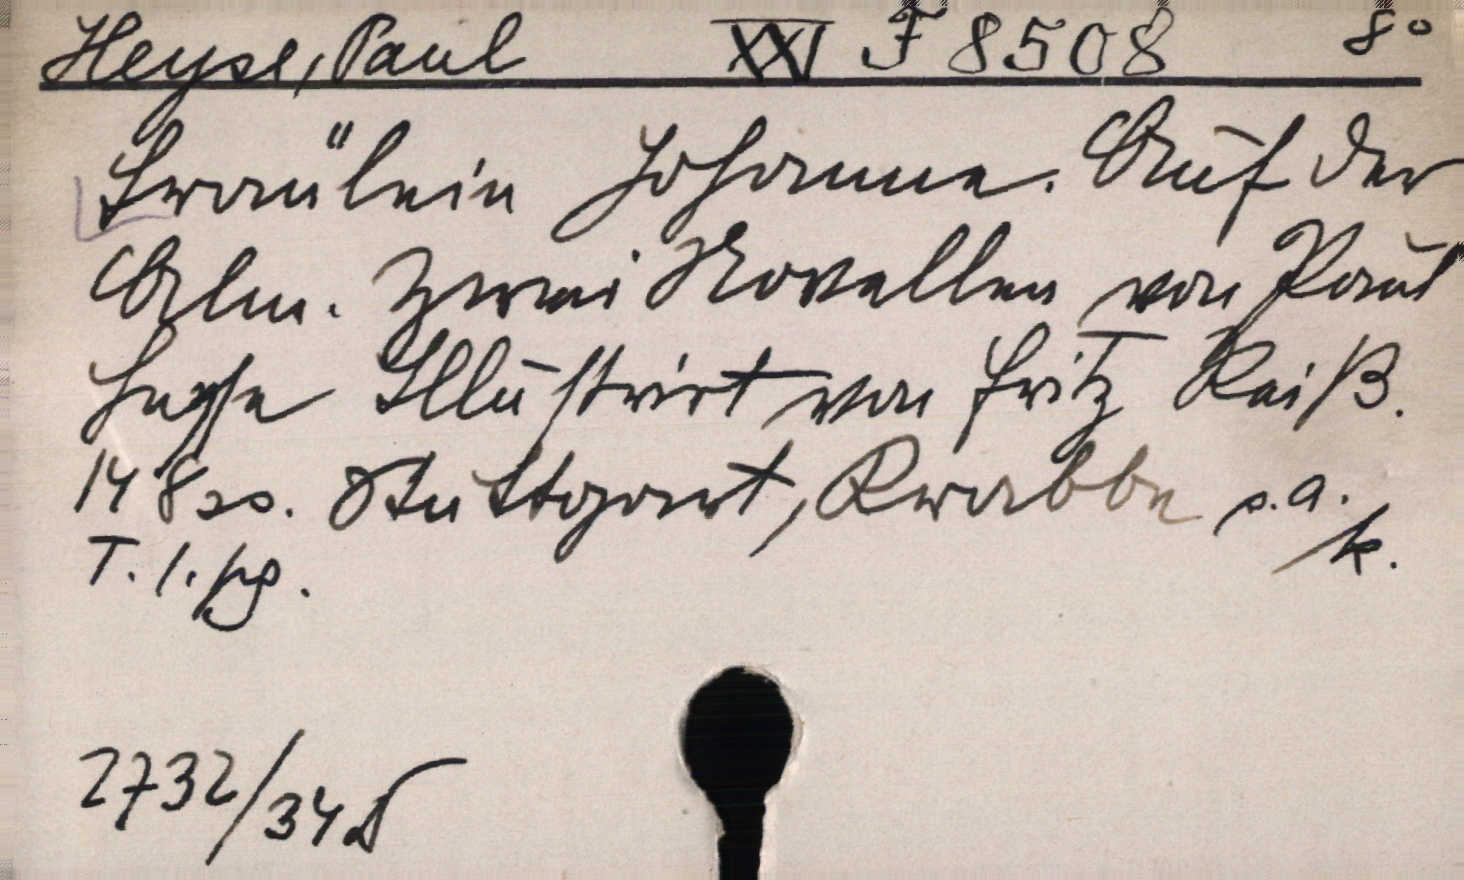 Heyse, Paul XXI F 8508 8°
Fräulein Johanne. Auf der
Alm. Zwei Novellen von Paul
Heyse Illustrirt von Fritz Reiß.
148 ss. Stuttgart, Krabbe s.a.
T. 1. pg. k.
2732/34